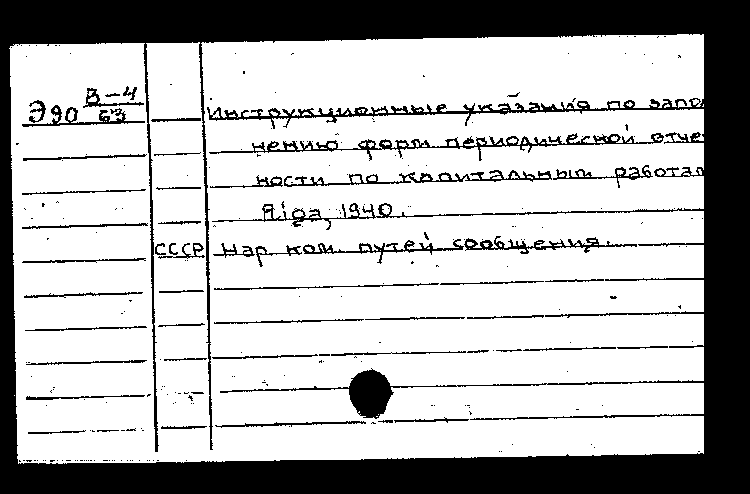 Э90 В-4/63
Инструкционные указания по запол
нению форм периодической отче
ности по капитальным работам
Rīga, 1940.
СССР Нар. ком. путей сообщения.